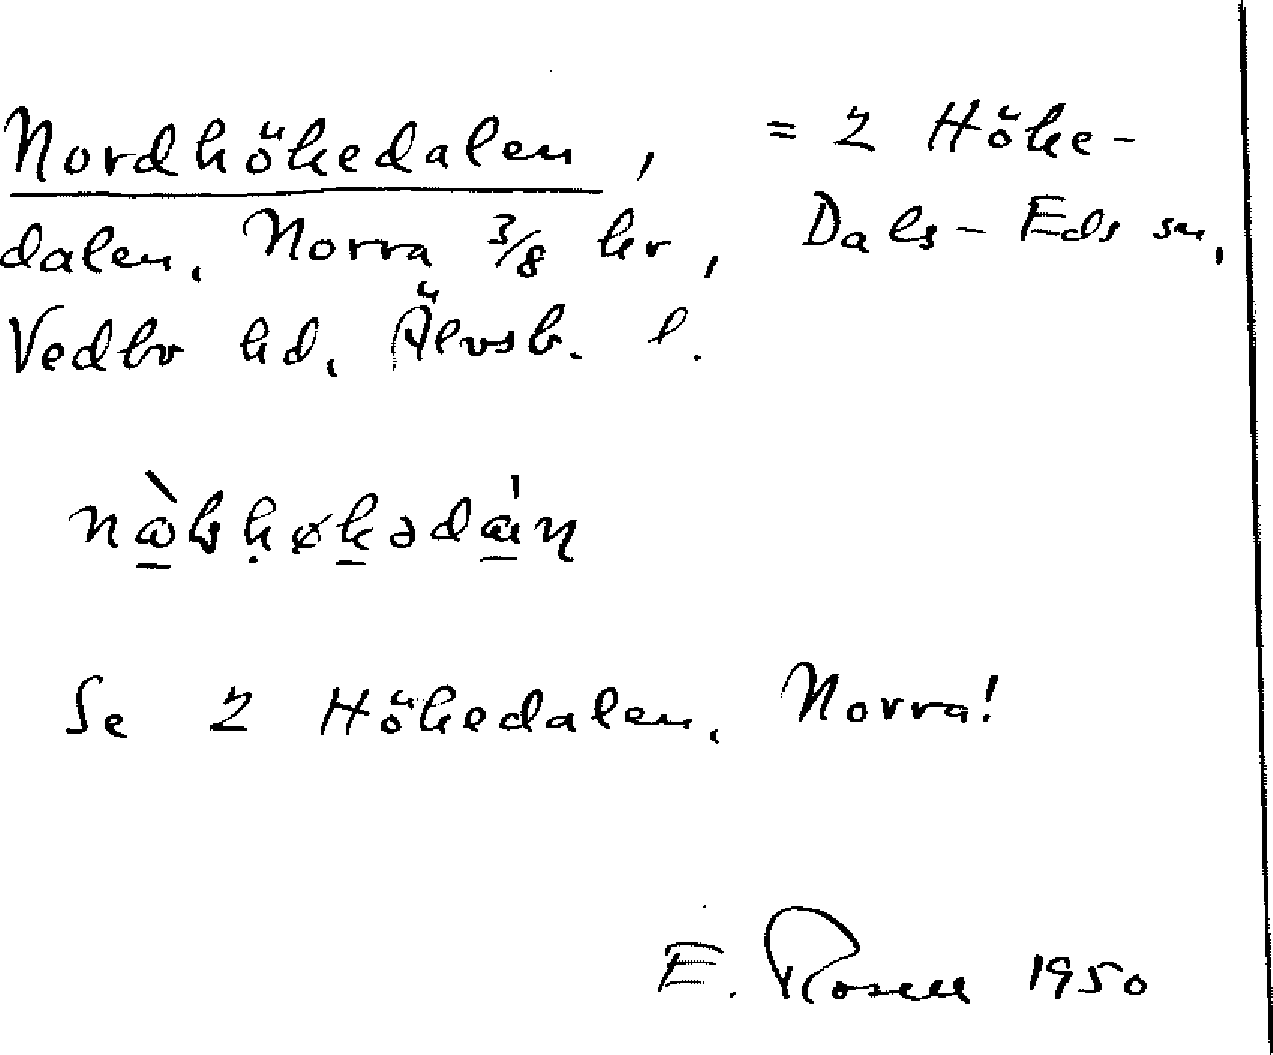 Nordhökedalen, = 2 Höke-
dalen, Norra 3/8 hr, Dals-Eds sn,
Vedbo hd, Älvsb. l.
Se 2 Hökedalen, Norra!
E. Rosell 1950